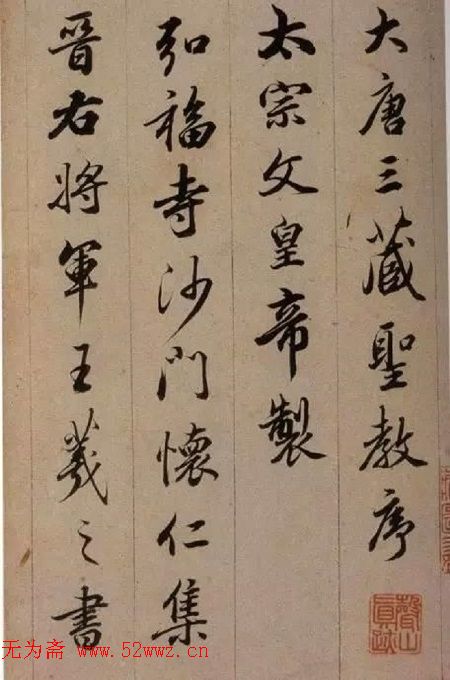 大唐三藏聖教序
太宗文皇帝製
弘福寺沙門懷仁集
晉右將軍王羲之書
无为斋 www.52wwz.cn